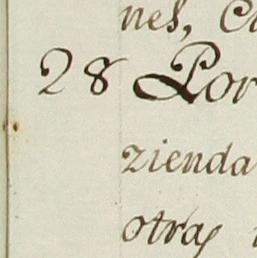 nes, C
28 Por
zienda
otras